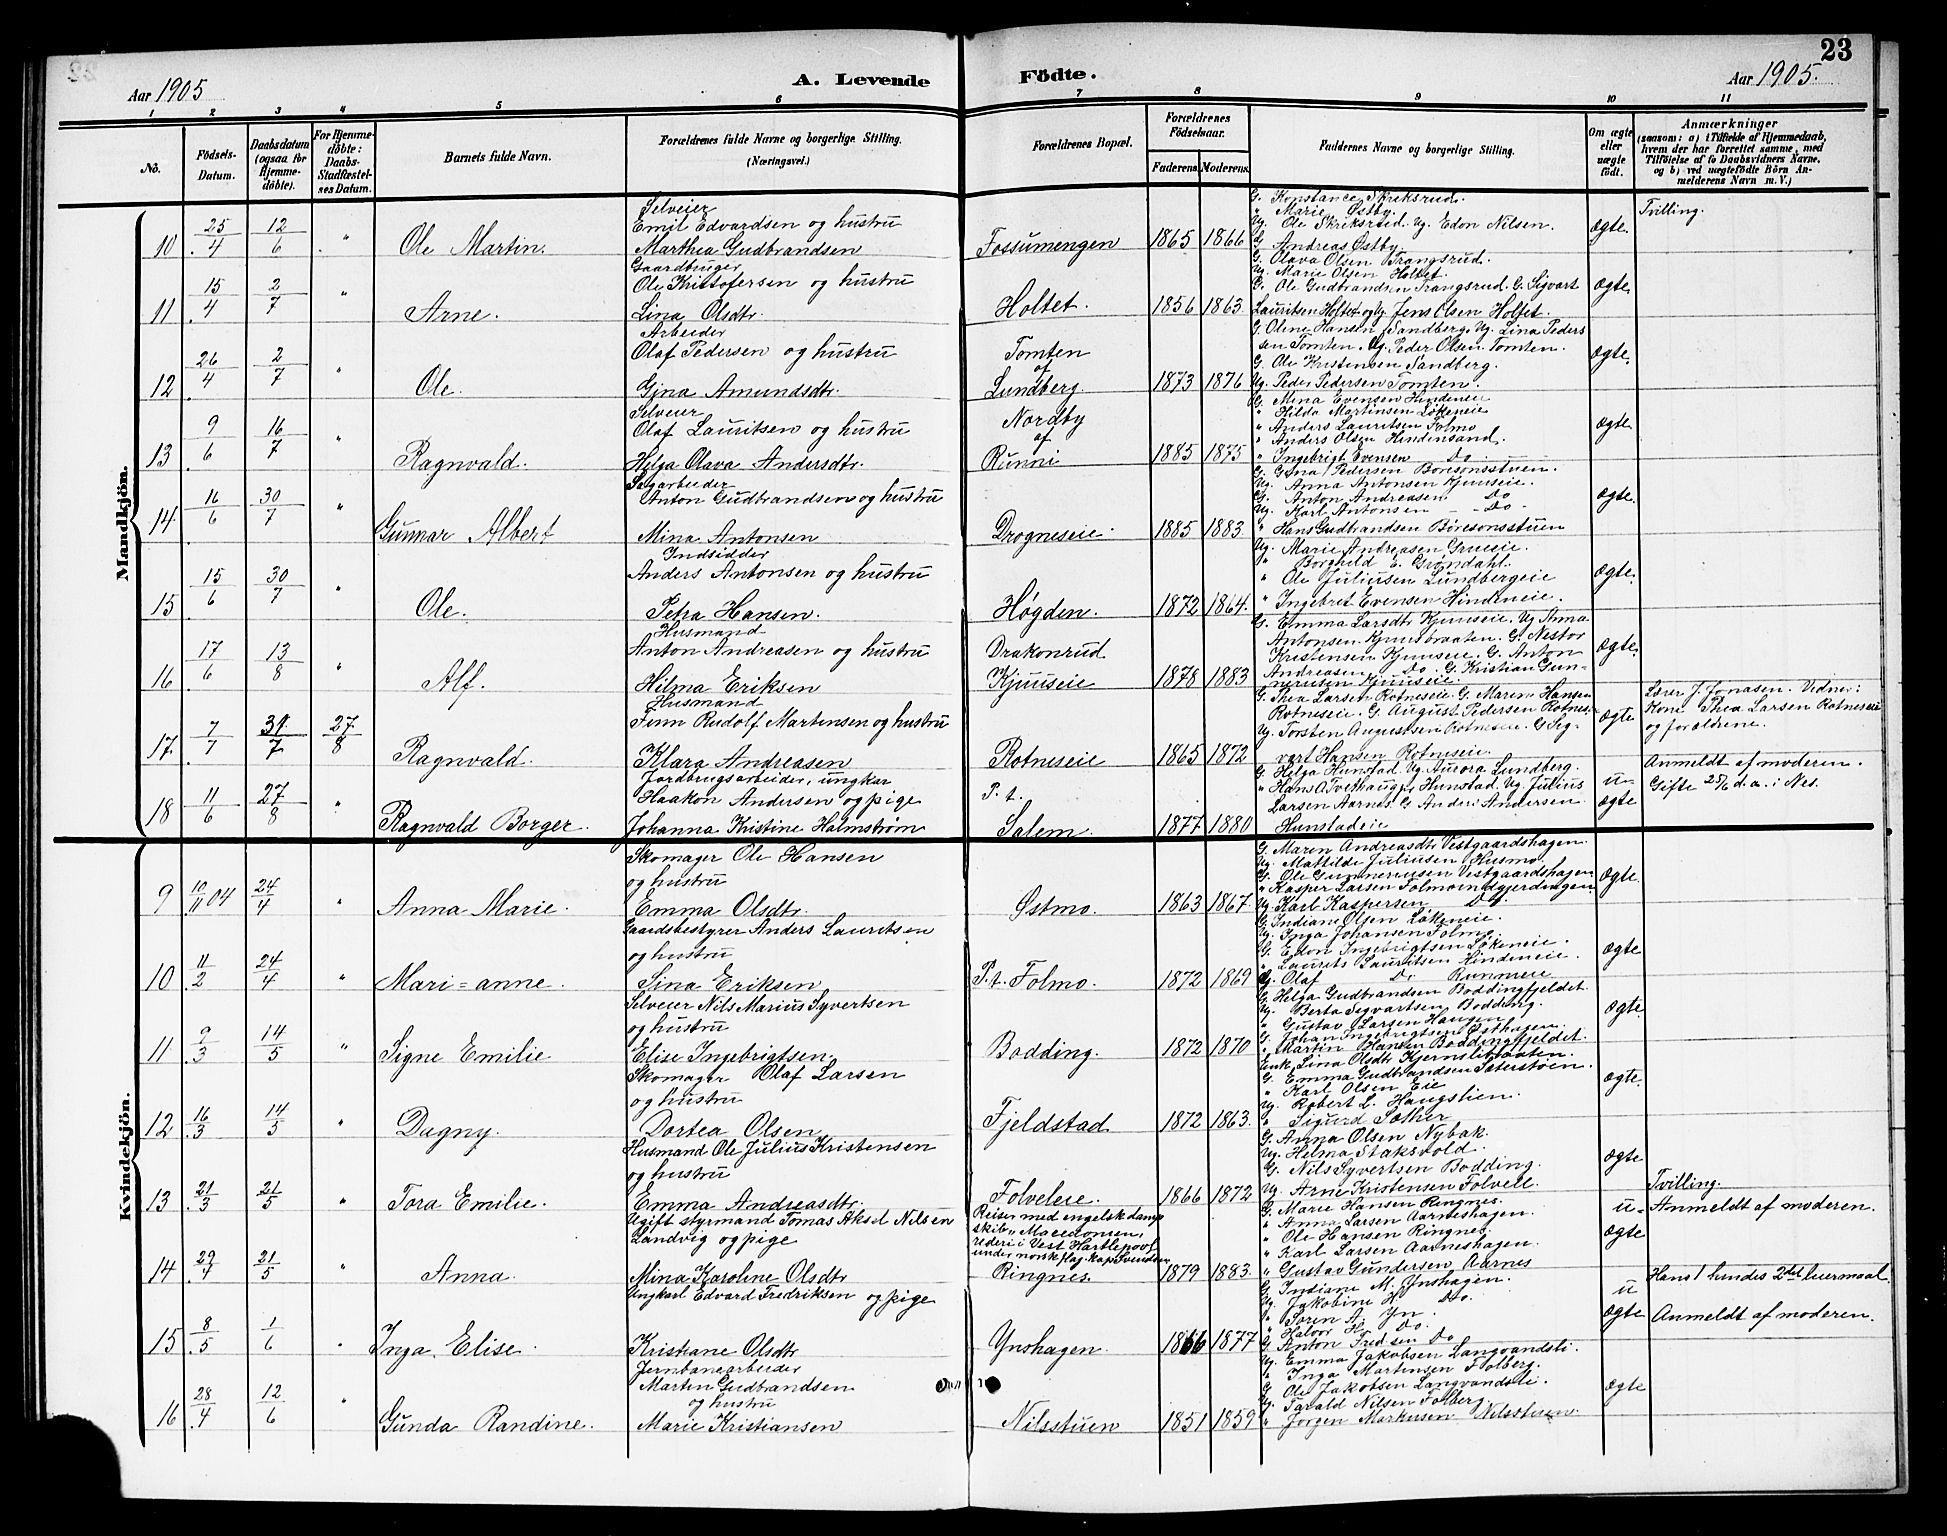 23
Aar 1905
A. Levende
Födte.
Aar 1905.
1 2 3 4 5 6 7 8 9 10 11
No.
Födsels-Datum.
Daabsdatum (ogsaa for Hjemmedöbte).
For Hjemmedöbte: Daabs-Stadfæstelses Datum.
Barnets fulde Navn.
Forældrenes fulde Navne og borgerlige Stilling.
(Næringsvei.)
Forældrenes Bopæl.
Forældrenes Födselsaar.
Faderens. Moderens.
Faddernes Navne og borgerlige Stilling.
Om ægte eller uægte födt.
Anmærkninger
(saasom: a) i Tilfælde af Hjemmedaab, hvem der har forrettet samme, med Tilföielse af to Daabsvidners Navne, og b) ved uægtefödte Börn Anmelderens Navn m. V.)
Mandkjön.
10 25/4 12/6 " Ole Martin.
Selveier
Emil Edvardsen og hustru
Marthea Gudbrandsen
Fossumengen 1865 1866
G. Konstance Skriksrud.
" Marie Østby.
Ug. Ole Skriksrud. Ug. Edon Nilsen.
G. Andreas Østby.
ægte. Tvilling.
11 15/4 2/7 " Arne.
Gaardbruger
Ole Kristofersen og hustru
Lina Olsdtr.
Holtet. 1856 1863
G. Olava Olsen Trangsrud.
Ug. Marie Olsen Holtet.
G. Ole Gudbrandsen Trangsrud. G. Sigvart
Lauritsen Holtet og Ug. Jens Olsen Holtet.
ægte.
12 26/4 2/7 " Ole.
Arbeider
Olaf Pedersen og hustru
Gina Amundsdtr.
Tomten
af
Lundberg. 1873 1876
G. Oline Hansen Sandberg. Ug. Lina Peders
sen Tomten. Ug. Peder Olsen Tomten.
G. Ole Kristensen Sandberg.
Ug. Peder Pedersen Tomten.
ægte.
13 9/6 16/7 " Ragnvald.
Selveier
Olaf Lauritsen og hustru
Helga Olava Andersdtr.
Nordby
af
Runni 1885 1875
G. Mina Evensen Hindeneie
" Hilda Martinsen Løkeneie
" Anders Lauritsen Folmo
" Anders Olsen Hindensand.
" Ingebrigt Evensen Do
ægte.
14 16/6 30/7 " Gunnar Albert
Sagarbeider
Anton Gudbrandsen og hustru
Mina Antonsen
Drogneseie 1885 1883
G. Gina Pedersen Boresonsstuen.
Ug. Anna Antonsen Kjuuseie.
G. Anton Andreasen Do
Ug. Karl Antonsen - Do -
" Hans Gudbrandsen Børesonsstuen
ægte.
15 15/6 30/7 " Ole.
Indsidder
Anders Antonsen og hustru
Petra Hansen.
Høgden. 1872 1864.
Ug. Marie Andreasen Grueeie.
" Borghild E. Grøndahl.
" Ole Juliusen Lundbergeie
" Ingebret Evensen Hindeneie.
ægte.
16 17/6 13/8 " Alf.
Husmand
Anton Andreasen og hustru
Hilma Eriksen
Drakonrud
Kjuuseie 1878 1883
G. Emma Larsdtr Kjuuseie. Ug Anna
Antonsen Kjuusbraaten. G. Nestor
Kristensen Kjuuseie. G. Anton
Andreasen Do. G. Kristian Gun-
neriusen Kjuuseie.
ægte.
17 7/7 31/7 27/8 Ragnvald.
Husmand
Finn Rudolf Martensen og hustru
Klara Andreasen
Rotneseie 1865 1872
G. Thea Larsen Rotneseie. G. Maren Hansen
Rotneseie. G. August Pedersen Rotnes-
Ug. Torsten Augustsen Rotneseie. G Sig-
vart Hansen Rotneseie.
ægte
Lærer J. Jonasen. Vidner:
Kone Thea Larsen Rotneseie
og forældrene.
18 11/6 27/8 " Ragnvald Borger.
Jordbrugsarbeider, ungkar
Haakon Andersen og pige
Johanna Kristine Halmstrøm
P. t.
Salem. 1877 1880
G. Helga Hunstad. Ug. Aurora Lundberg.
" Hans O. Tvethaug, Hunstad. Ug. Julius
Larsen Aarnes. G. Anders Andersen
Hunstadeie
u-
ægte
Anmeldt af moderen.
Gifte 25/6 d. a. i Nes.
Kvindekjön.
9 10/11 04 24/4 " Anna Marie.
Skomager Ole Hansen
og hustru
Emma Olsdtr.
Østmo. 1863 1867
G. Maren Andreasdtr Vestgaardshagen.
Ug. Mathilde Juliusen Husmo.
G. Ole Gunneriusen Vestgaardshagen
" Kasper Larsen Folmoindgjerdingen
Ug. Karl Kaspersen Do.
ægte.
10 11/2 24/4 " Mari=anne.
Gaardsbestyrer Anders Lauritsen
og hustru
Lina Eriksen
P. t. Folmo. 1872 1869
G. Indiane Olsen Løkeneie.
Ug. Inga Johansen Folmo.
G. Edon Ingebrigtsen Løkeneie.
" Laurits Lauritsen Hindeneie.
G. Olaf Do Runnieie
ægte
11 9/3 14/5 " Signe Emilie
Selveier Nils Marius Syvertsen
og hustru
Elise Ingebrigtsen
Bodding. 1872 1870
G. Helga Gudbrandsen Boddingfjeldet.
Ug. Berta Sigvartsen Bodding.
" Gustav Larsen Haugen
G. Johan Ingebrigtsen Østhagen.
" Martin Hansen Boddingfjeldet.
ægte.
12 16/3 14/5 " Dagny.
Skomager Olaf Larsen
og hustru
Dortea Olsen
Fjeldstad 1872 1863.
Enk. Lina Olsdtr Kjernslibraaten.
G. Emma Gudbrandsen Sæterstøen.
" Karl Olsen Eie
Ug. Robert L. Haugslien.
" Sigurd Sæther
ægte.
13 21/3 21/5 " Tora Emilie.
Husmand Ole Julius Kristensen
og hustru
Emma Andreasdtr.
Folveleie. 1866 1872
G. Anna Olsen Nybak.
Ug. Helma Staksvold.
G. Nils Syvertsen Bodding.
Ug. Arne Kristensen Folvell.
ægte
14 29/4 21/5 " Anna.
Ugift styrmand Tomas Aksel Nilsen
Landvig og pige
Mina Karoline Olsdtr
Reiser med engelsk damp-
skib "Macedonien,
rederi i Vest Hartlepool
under norsk flag. kap. Svendsen
Ringnes. 1879 1883.
G. Marie Hansen Ringnes.
" Anna Larsen Aarneshagen.
" Ole Hansen Ringnes.
" Karl Larsen Aarneshagen.
" Gustav Gundersen Aarnes
u-
ægte
Tvilling.
Anmeldt af moderen.
15 8/5 1/6 " Inga Elise.
Ungkarl Edvard Fredriksen og pige
Kristiane Olsdtr
Ynshagen. 1866 1877
G. Indiane M. Ynshagen.
Ug. Jakobine H. Do.
" Søren A. Yn.
" Halvor H. Do.
G. Anton Fredsen Do
u
ægte
Hans 1 hendes 2det leiermaal.
Anmeldt af moderen.
16 28/4 12/6 " Gunda Randine.
Jernbanearbeider
Martin Gudbrandsen
og hustru
Marie Kristiansen
Nilsstuen 1851 1859
Ug. Emma Jakobsen Langvandsli.
" Inga Martinsen Folberg.
G. Ole Jakobsen Langvandsli.
Ug. Harald Nilsen Folberg.
" Jørgen Markusen Nilsstuen
ægte